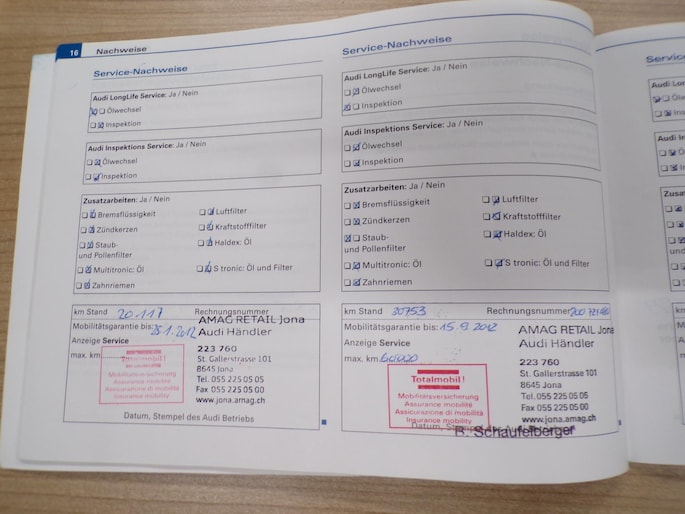 16 Nachweise
Service-Nachweise
Audi LongLife Service: Ja / Nein
Ölwechsel
Inspektion
Audi Inspektions Service: Ja / Nein
Ölwechsel
Inspektion
Zusatzarbeiten: Ja / Nein
Bremsflüssigkeit
Luftfilter
Zündkerzen
Kraftstofffilter
Staub-
und Pollenfilter
Haldex: Öl
Multitronic: Öl
S tronic: Öl und Filter
Zahnriemen
km Stand 20.117 Rechnungsnummer
Mobilitätsgarantie bis: 25.1.2012
Anzeige Service
max. km
AMAG RETAIL Jona
Audi Händler
223 760
St. Gallerstrasse 101
8645 Jona
Tel. 055 225 05 05
Fax 055 225 05 05
www.jona.amag.ch
Totalmobil!
Mobilitätsversicherung
Assurance mobilité
Assicurazione di mobilità
Insurance mobility
Datum, Stempel des Audi Betriebs
Service-Nachweise
Audi LongLife Service: Ja / Nein
Ölwechsel
Inspektion
Audi Inspektions Service: Ja / Nein
Ölwechsel
Inspektion
Zusatzarbeiten: Ja / Nein
Bremsflüssigkeit
Luftfilter
Zündkerzen
Kraftstofffilter
Staub-
und Pollenfilter
Haldex: Öl
Multitronic: Öl
S tronic: Öl und Filter
Zahnriemen
km Stand 30753 Rechnungsnummer
Mobilitätsgarantie bis: 15.9.2012
Anzeige Service
max. km
AMAG RETAIL Jona
Audi Händler
223 760
St. Gallerstrasse 101
8645 Jona
Tel. 055 225 05 05
Fax 055 225 05 00
www.jona.amag.ch
Totalmobil!
Mobilitätsversicherung
Assurance mobilité
Assicurazione di mobilità
Insurance mobility
Datum, Stempel des Audi
B. Schaufelberger